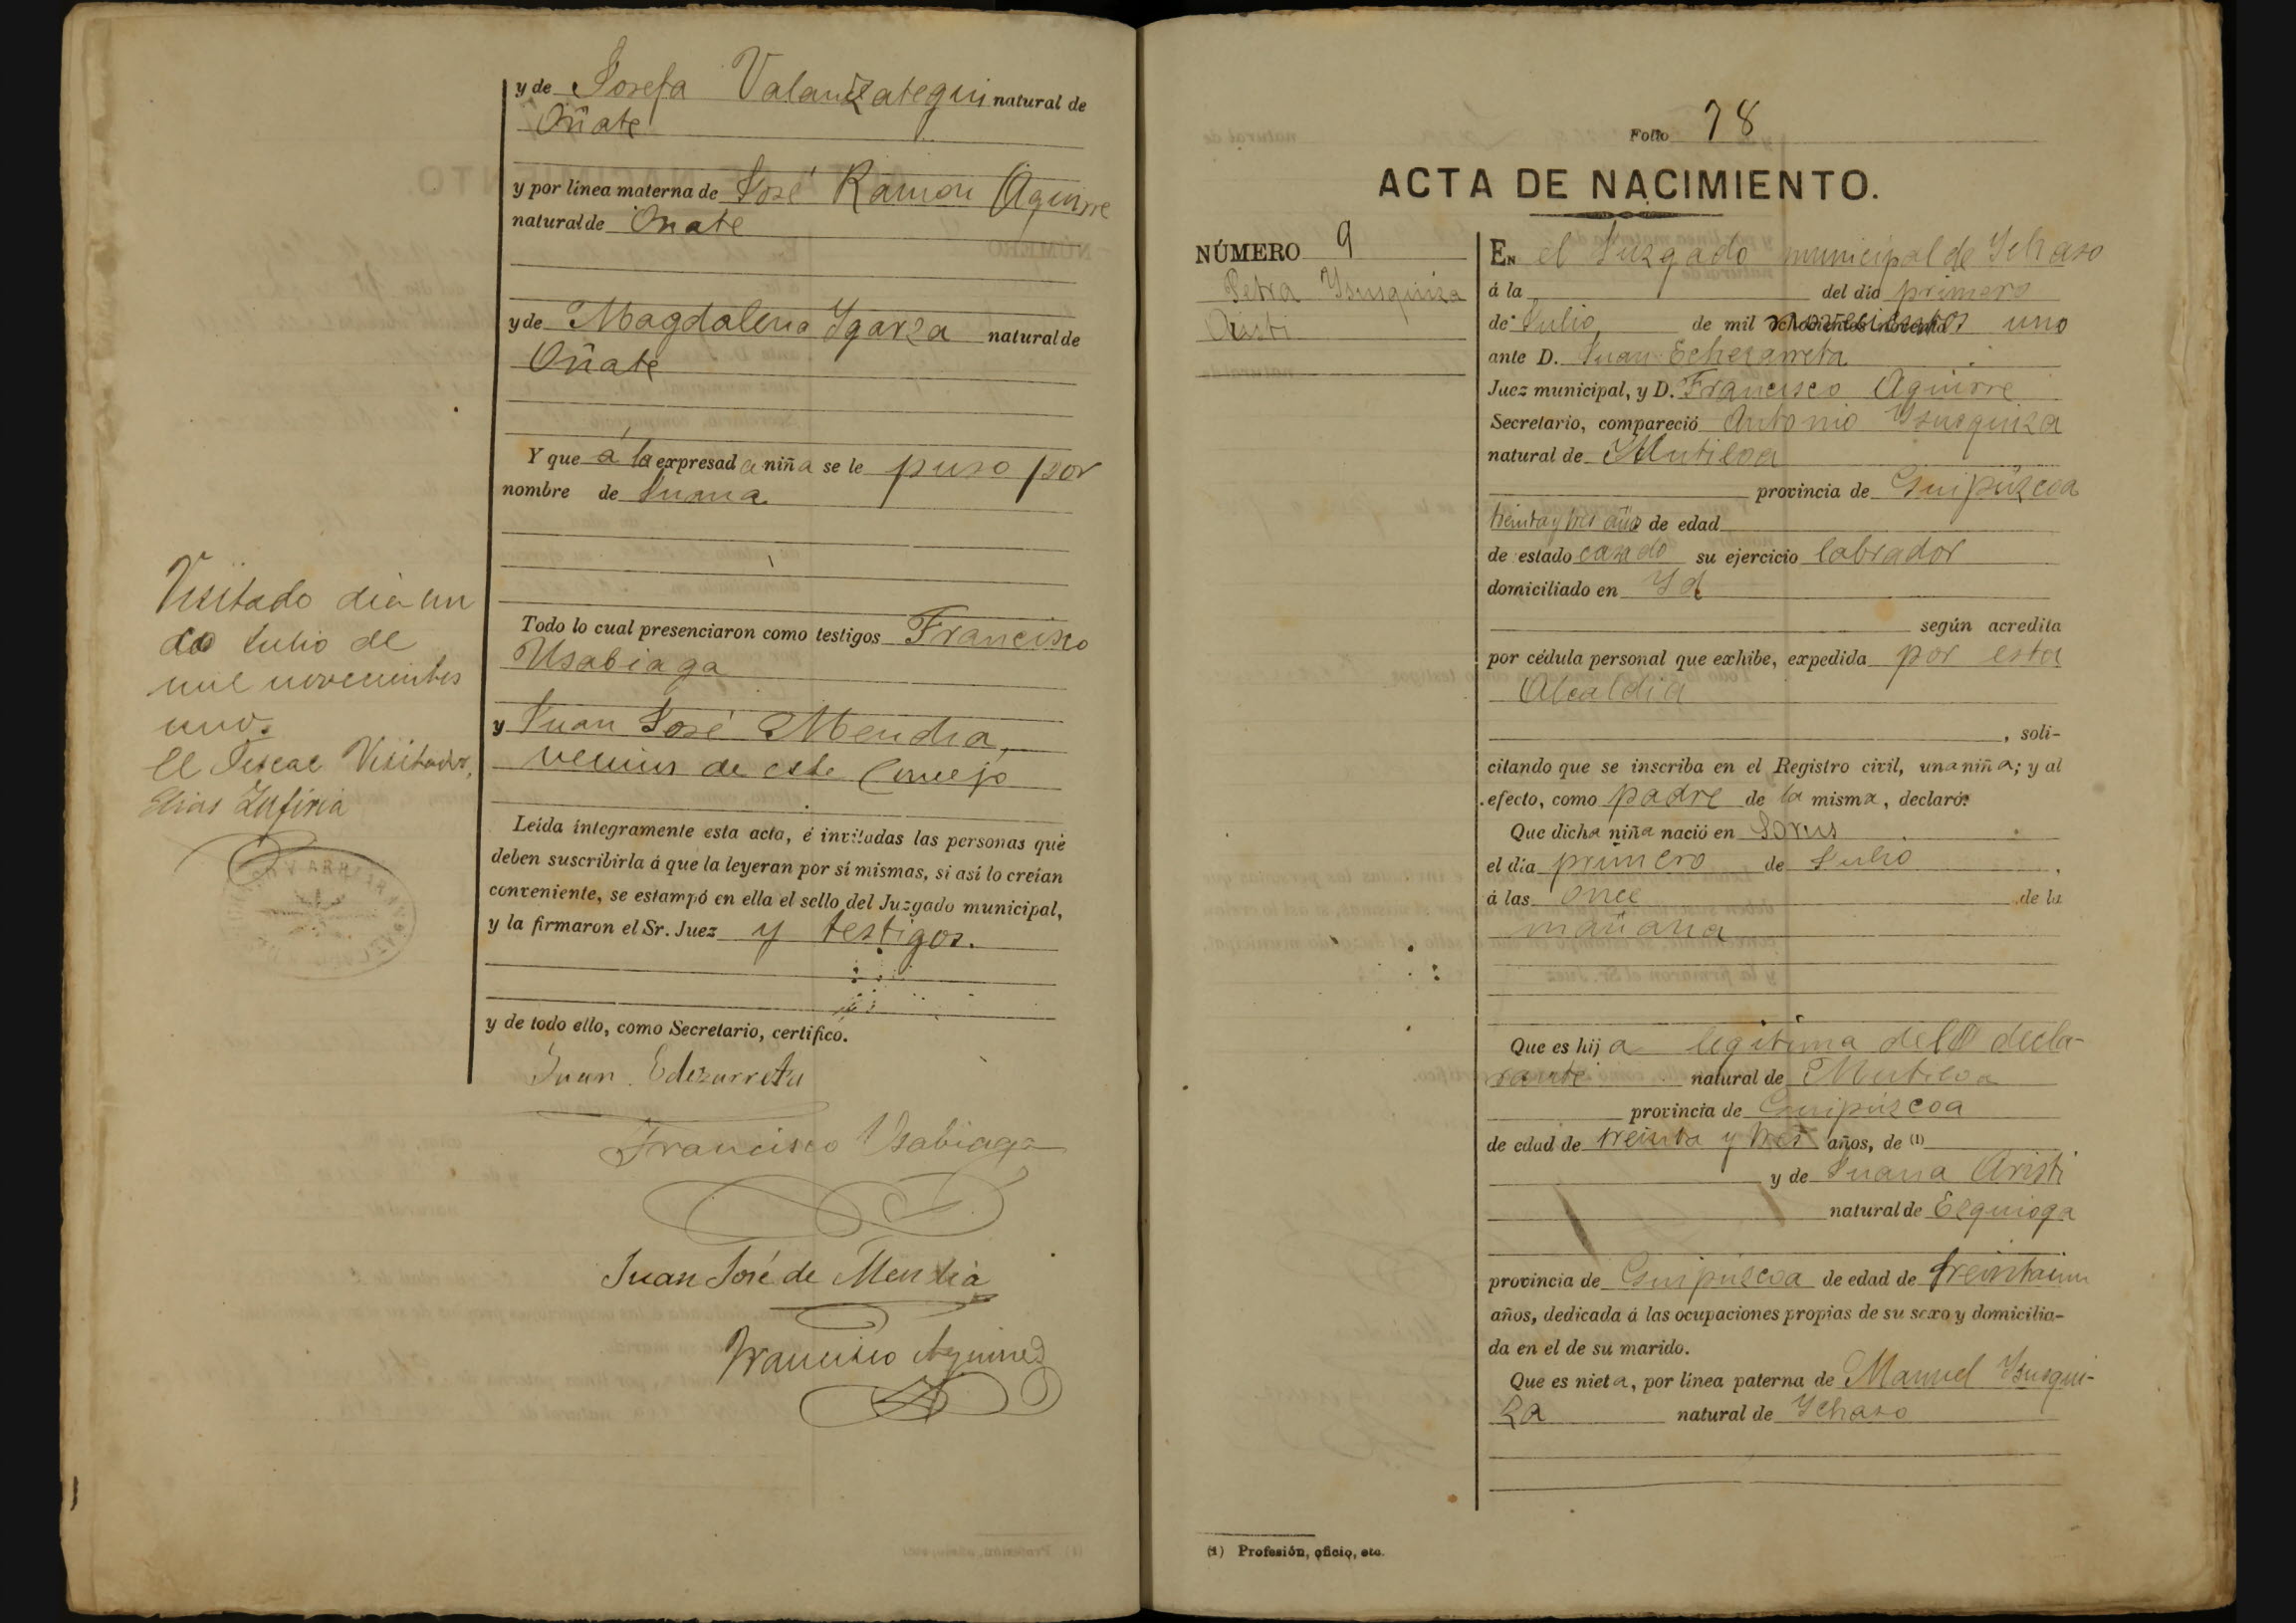 y de Josefa Valanzategui natural de
Oñate
y por línea materna de José Ramon Aguirre
natural de Oñate
y de Magdalena Ygarza natural de
Oñate
Y que á la expresada niña se le puso por
nombre de Juana
Todo lo cual presenciaron como testigos Francisco
Usabiaga
y Juan José Mendia,
vecinos de este Concejo
Leída íntegramente esta acta, é invitadas las personas que
deben suscribirla á que la leyeran por sí mismas, si así lo creían
conveniente, se estampó en ella el sello del Juzgado municipal,
y la firmaron el Sr. Juez y testigos.
y de todo ello, como Secretario, certifico.
Juan Echezarreta
Francisco Usabiaga
Juan José de Mendia
Francisco Aguirre
Visitado dia un
de Julio de
mil novecientos
uno.
El Fiscal Visitador,
Elias
Folio 78
ACTA DE NACIMIENTO.
NÚMERO 9
Petra Ysusquiza
Aristi
En el Juzgado municipal de Ychaso
á la del día primero
de Julio de mil novecientos uno
ante D. Juan Echezarreta
Juez municipal, y D. Francisco Aguirre
Secretario, compareció Antonio Ysusquiza
natural de Mutiloa
provincia de Guipúzcoa
treinta y tres años de edad
de estado casado su ejercicio labrador
domiciliado en Yd
según acredita
por cédula personal que exhibe, expedida por esta
Alcaldia
, soli-
citando que se inscriba en el Registro civil, una niña; y al
efecto, como padre de la misma, declaró:
Que dicha niña nació en
el día primero de Julio
á las once de la
mañana
Que es hija legitima del decla-
rante natural de Mutiloa
provincia de Guipúzcoa
de edad de treinta y tres años, de (1)
y de Juana Aristi
natural de Ezquioga
provincia de Guipuzcoa de edad de treintaiun
años, dedicada á las ocupaciones propias de su sexo y domicilia-
da en el de su marido.
Que es nieta, por línea paterna de Manuel Ysusqui-
za natural de Ychaso
(1) Profesión, oficio, etc.